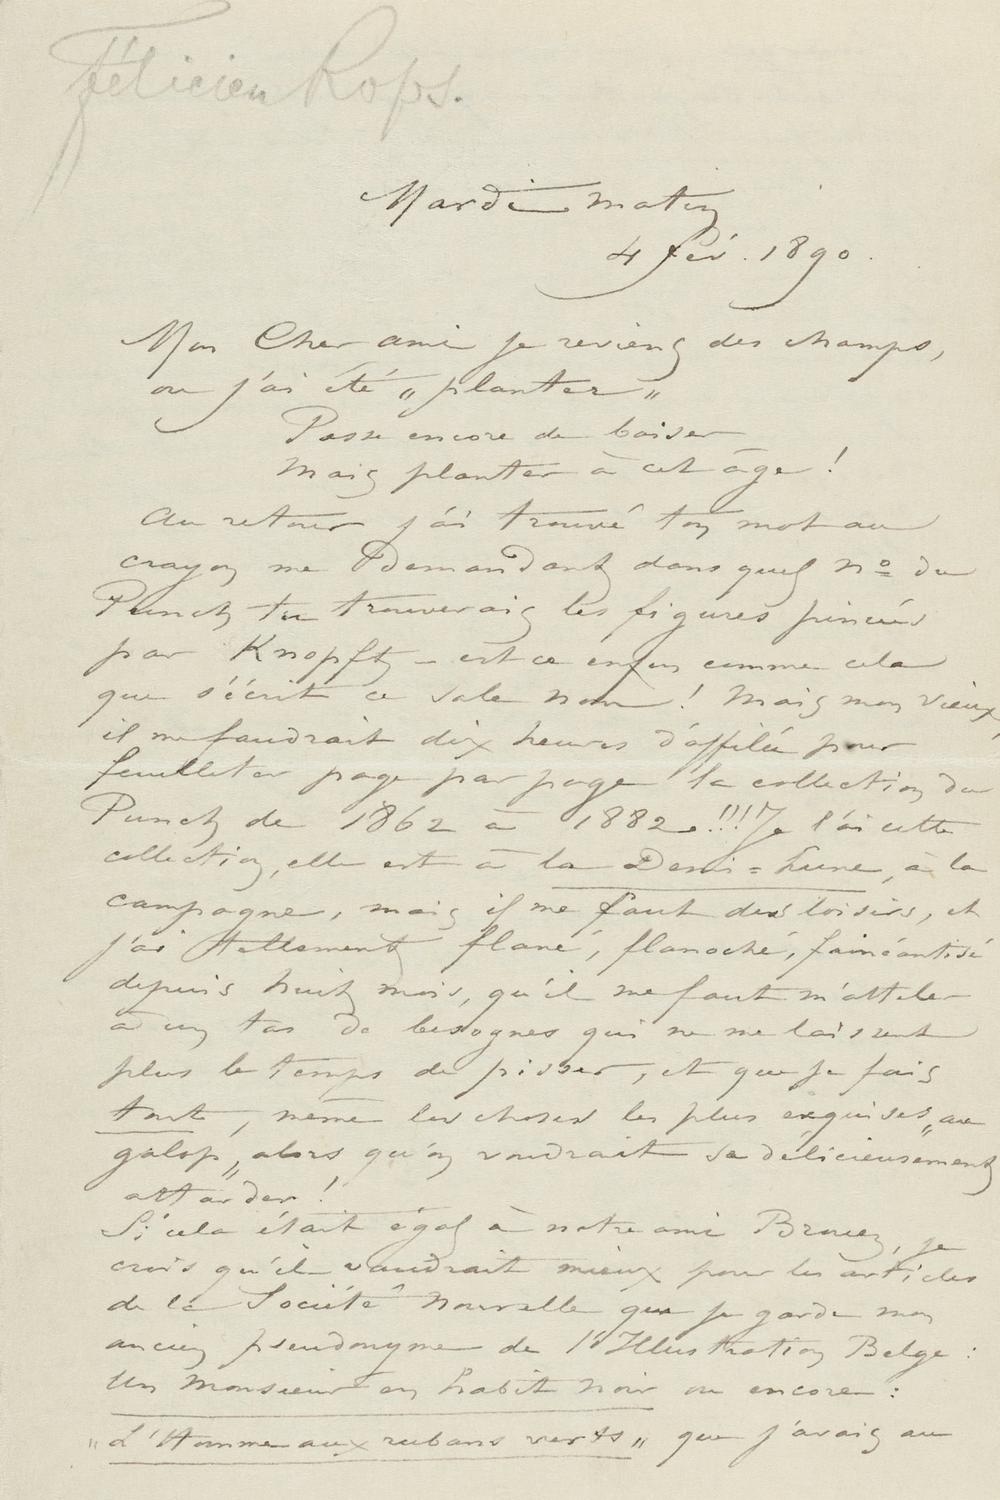 Félicien Rops.
Mardi matin
4 fév. 1890.
Mon Cher ami je reviens des champs,
ou j'ai été „planter„
Passe encore de baiser
Mais planter à cet âge !
Au retour j'ai trouvé ton mot au
crayon me demandant dans quel nº du
Punch tu trouverais les figures pincées
par Knopff – est ce enfin comme cela
que s'écrit ce sale nom ! Mais mon vieux,
il me faudrait dix heures d'affilée pour
feuilleter page par page la collection du
Punch de 1862 à 1882.!!! Je l'ai cette
collection, elle est à la Demi=Lune, à la
campagne, mais il me faut des loisirs, et
j'ai tellement flané, flanoché, fainéantisé
depuis huit mois, qu'il me faut m'atteler
à un tas de besognes qui ne me laissent
plus le temps de pisser, et que je fais
tout, même les choses les plus exquises „au
galop„ alors qu'on voudrait se délicieusement
attarder !
Si cela était égal à notre ami Brouez, je
crois qu'il vaudrait mieux pour les articles
de la Société Nouvelle que je garde mon
ancien pseudonyme de l'Illustration Belge :
Un Monsieur en habit noir ou encore :
„L'Homme aux rubans verts„ que j'avais au